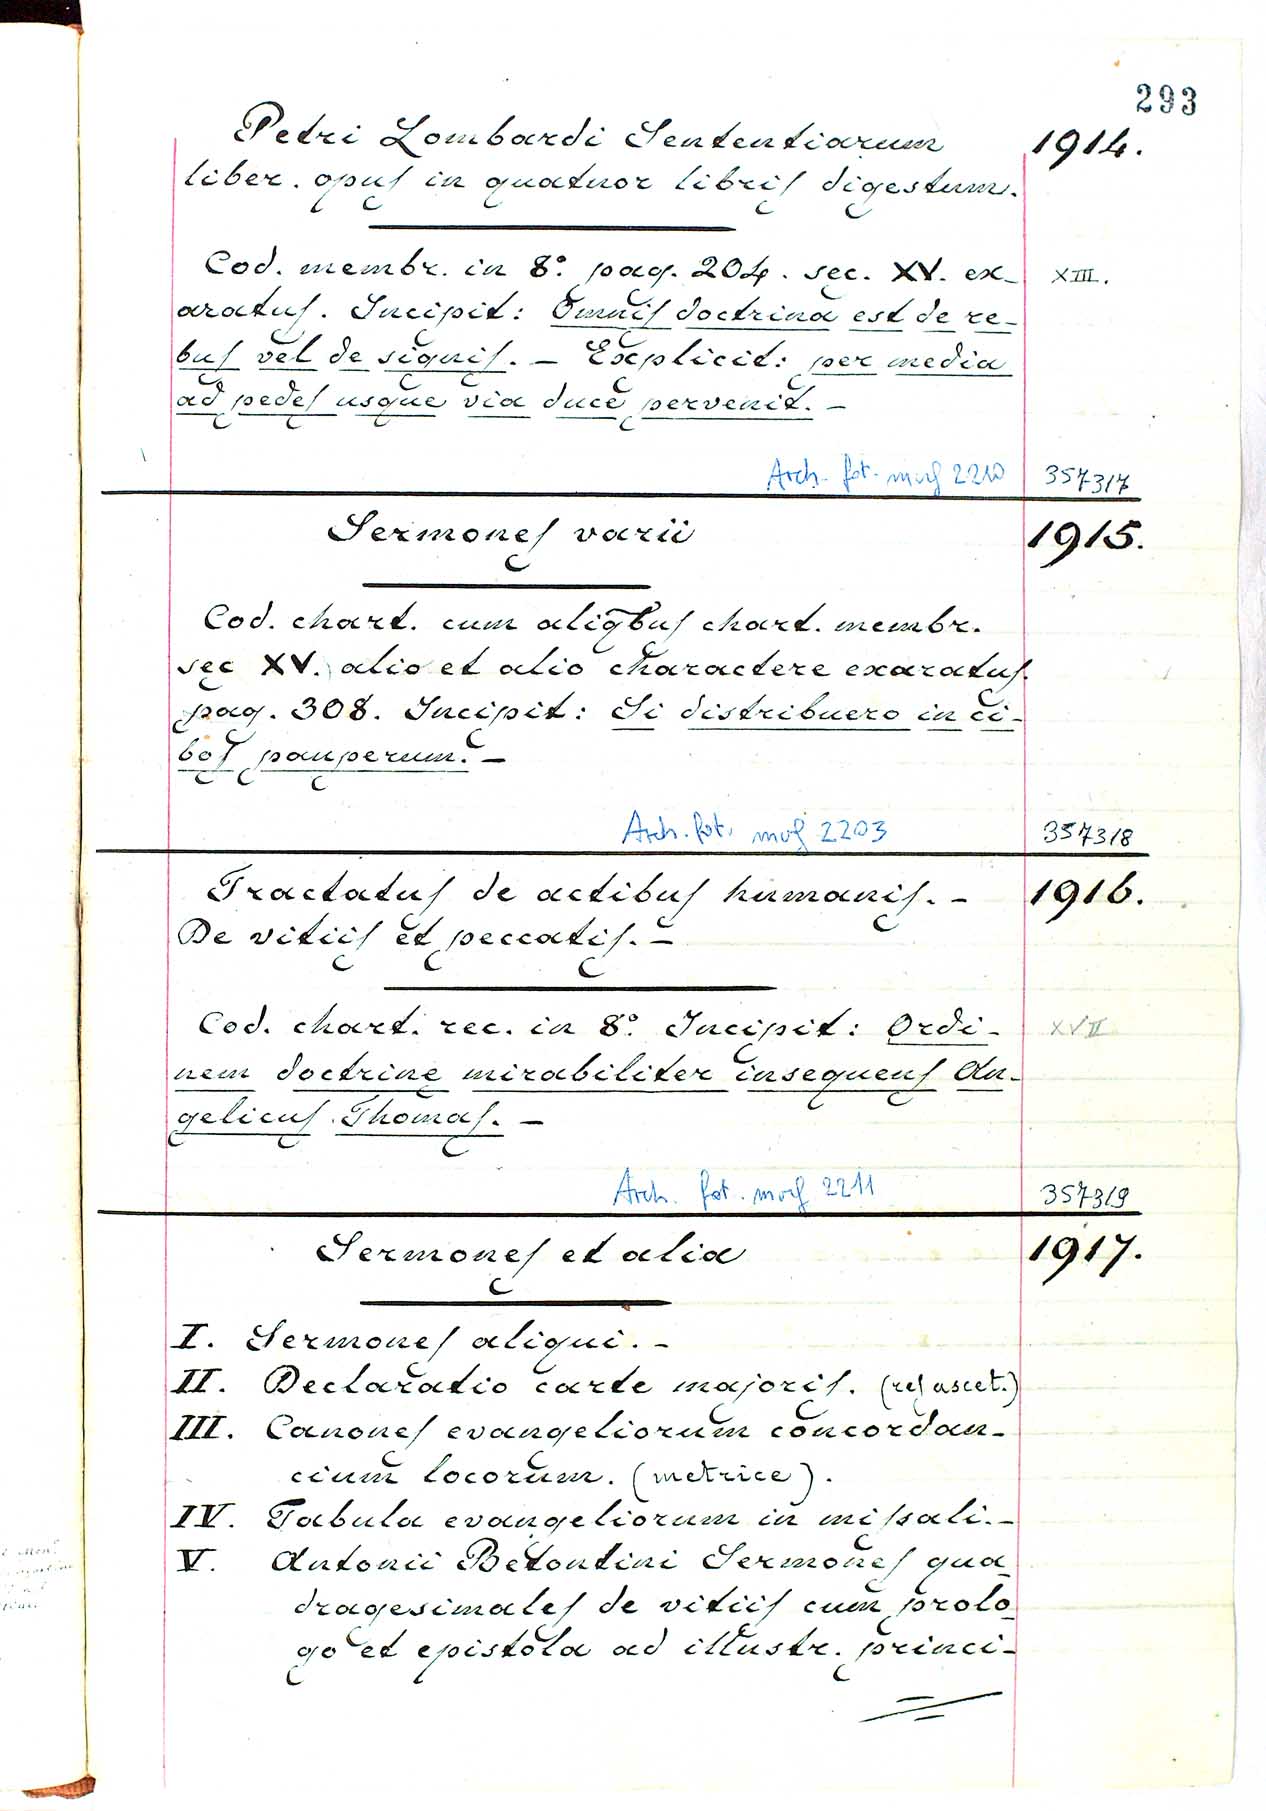 293
Petri Lombardi Sententiarum 1914.
liber. opus in quatuor libris digestum.
Cod. membr. in 8º. pag. 204. sec. XV. ex- XIII.
aratus. Incipit: Omnis doctrina est de re-
bus vel de signis. – Explicit: per media
ad pedes usque via duce pervenit. –
Arch. fot. 2210 357317
Sermones varii 1915.
Cod. chart. cum aliqbus chart. membr.
sec XV. alio et alio charactere exaratus.
pag. 308. Incipit: Si distribuero in ci-
bos pauperum. –
Arch. fot. 2203 357318
Tractatus de actibus humanis. – 1916.
De vitiis et peccatis. –
Cod. chart. rec. in 8º. Incipit: Ordi- XVII
nem doctrine mirabiliter insequens An-
gelicus Thomas. –
Arch. fot. 2211 357319
Sermones et alia 1917.
I. Sermones aliqui. –
II. Declaratio carte majoris. (res ascet.)
III. Canones evangeliorum concordan-
cium locorum. (metrice).
IV. Tabula evangeliorum in missali. –
V. Antonii Betontini Sermones qua
dragesimales de vitiis cum prolo
go et epistola ad illustr. princi-